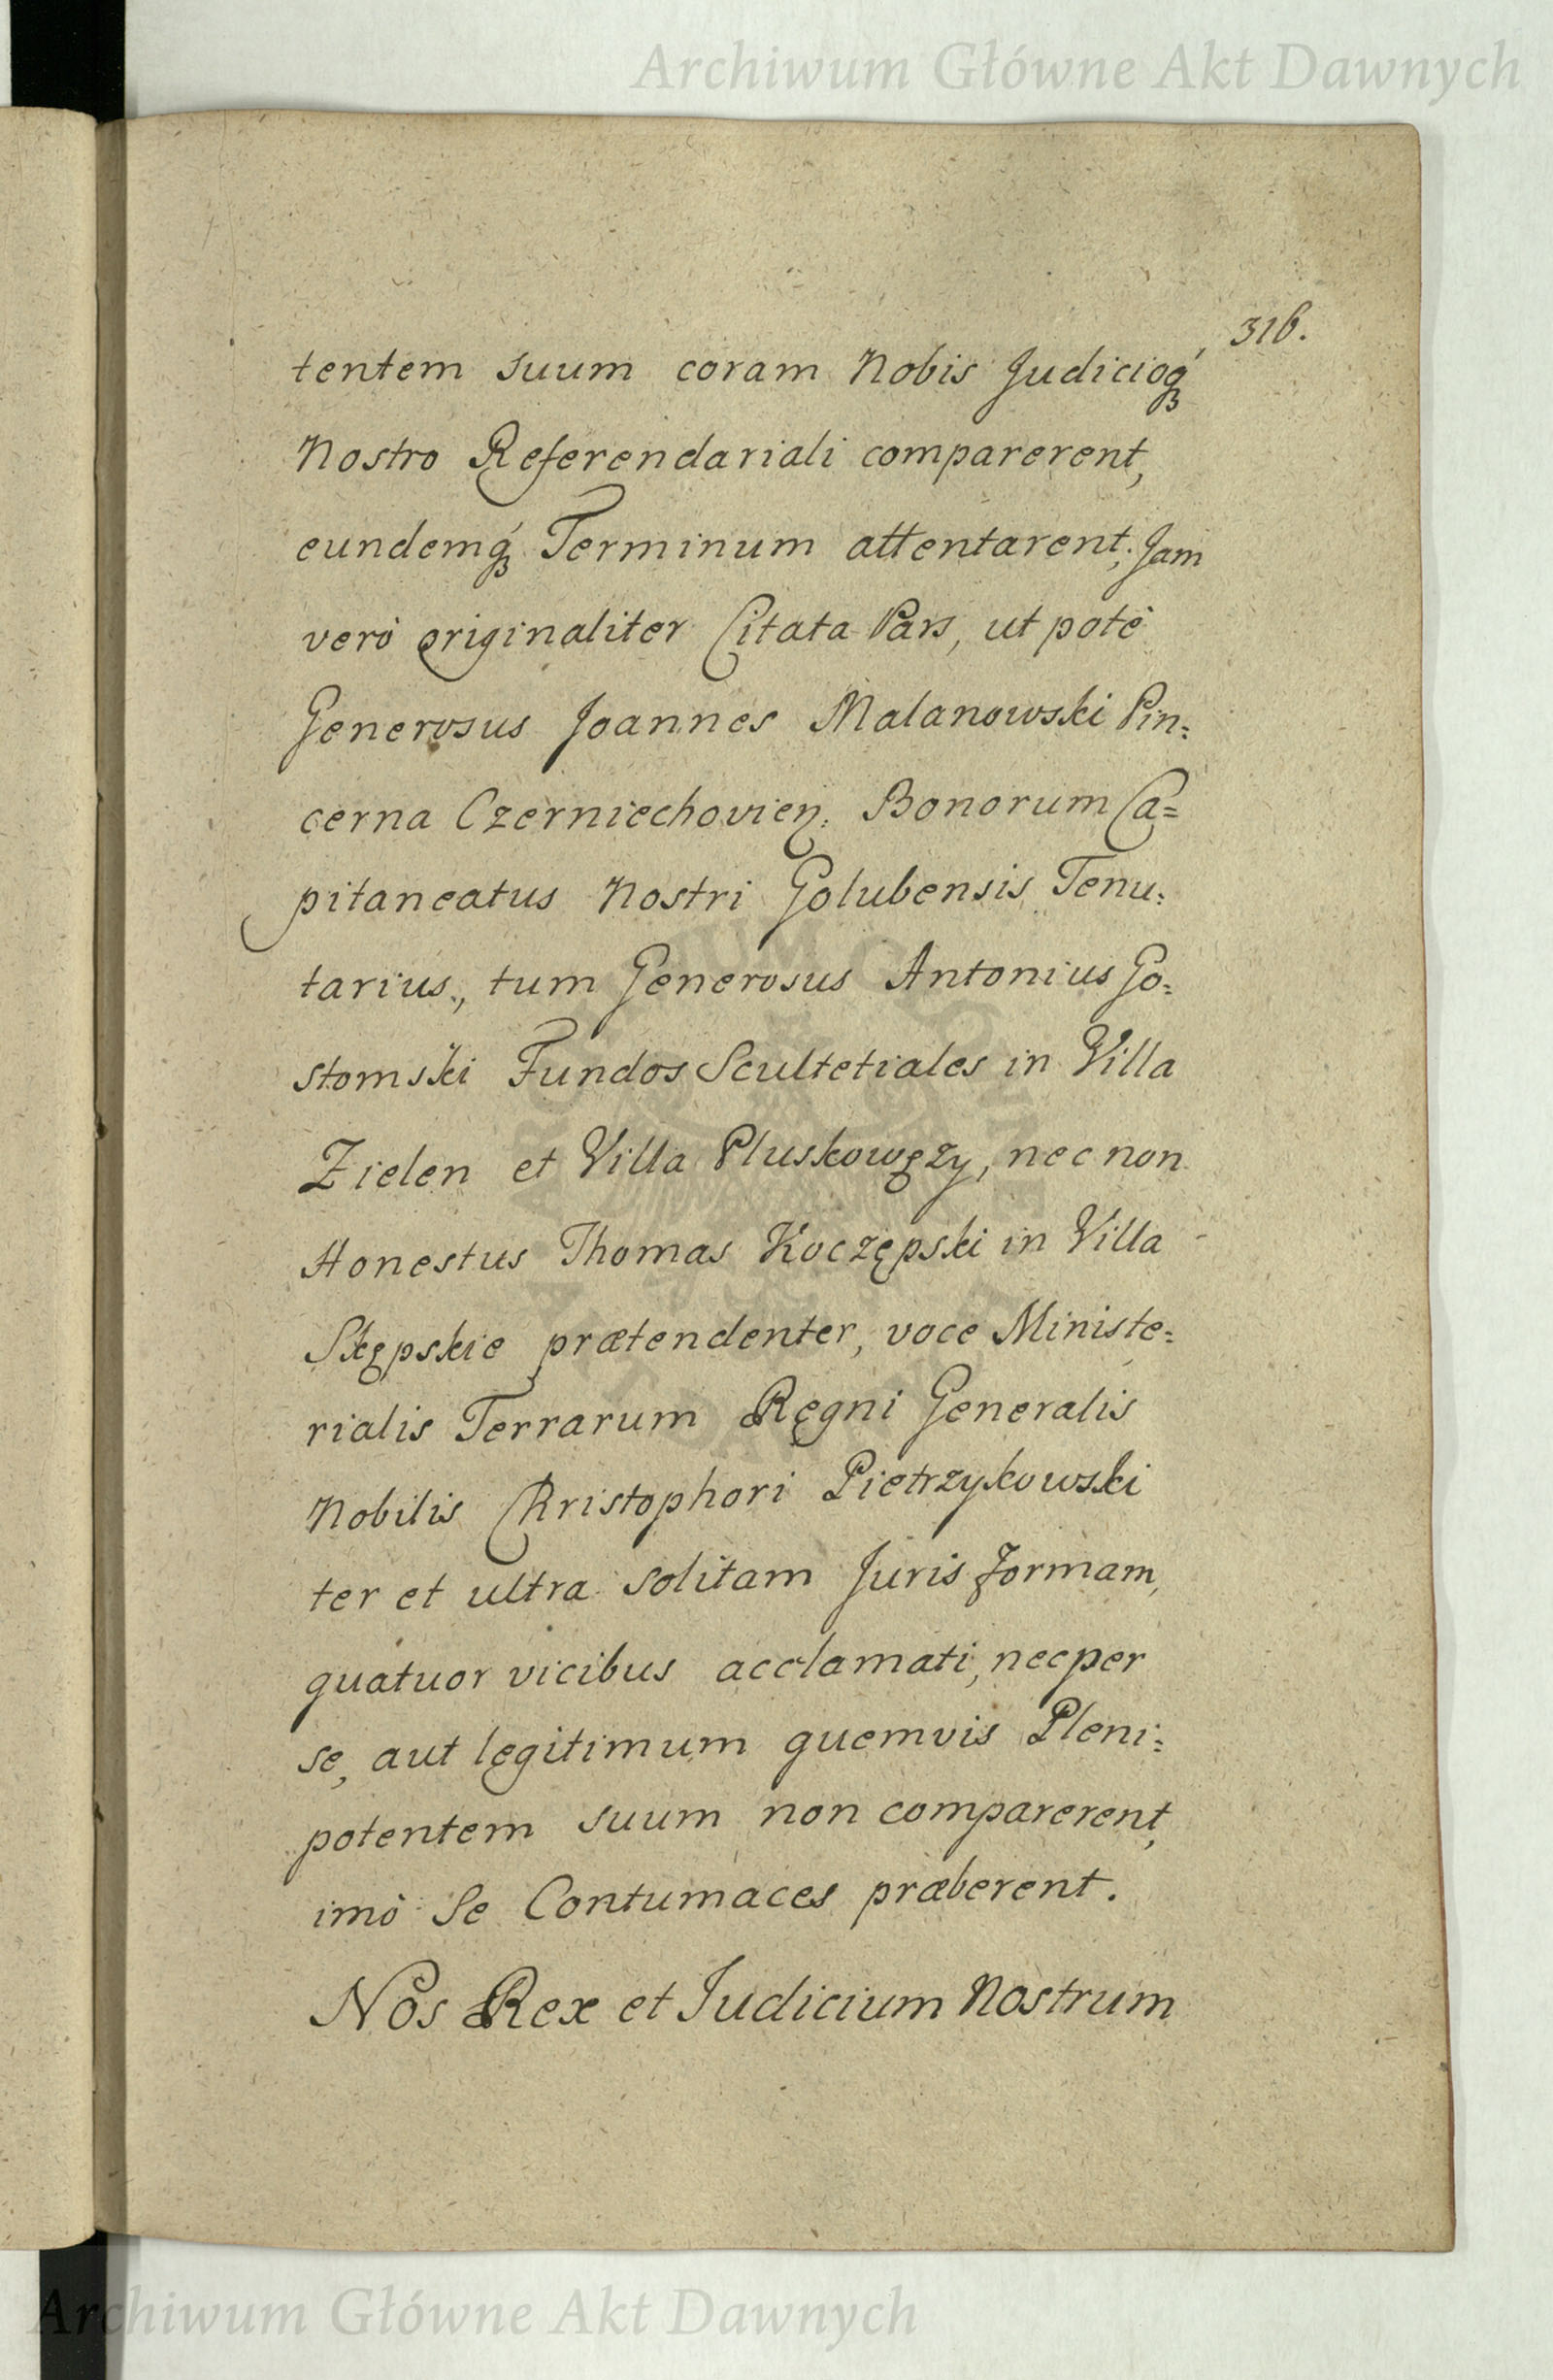 Archiwum Główne Akt Dawnych
316.
tentem suum coram Nobis Judicioq́ꝫ
Nostro Referendariali comparerent,
eundemq́ꝫ Terminum attentarent; Jam
verò originaliter Citata Pars, ut potè
Generosus Joannes Malanowski Pin:
cerna Czerniechovien: Bonorum Ca=
pitaneatus Nostri Golubensis Tenu:
tarius, tum Generosus Antonius Go:
stomski Fundos Scultetiales in Villa
Zielen et Villa Pluskowęzy, nec non
Honestus Thomas Koczępski in Villa
Skępskie prætendenter, voce Ministe:
rialis Terrarum Regni Generalis
Nobilis Christophori Pietrzykowski
ter et ultra solitam Juris formam,
quatuor vicibus acclamati, nec per
se, aut legitimum quemvis Pleni:
potentem suum non comparerent,
imò Se Contumaces præberent.
Nos Rex et Judicium Nostrum
Archiwum Główne Akt Dawnych